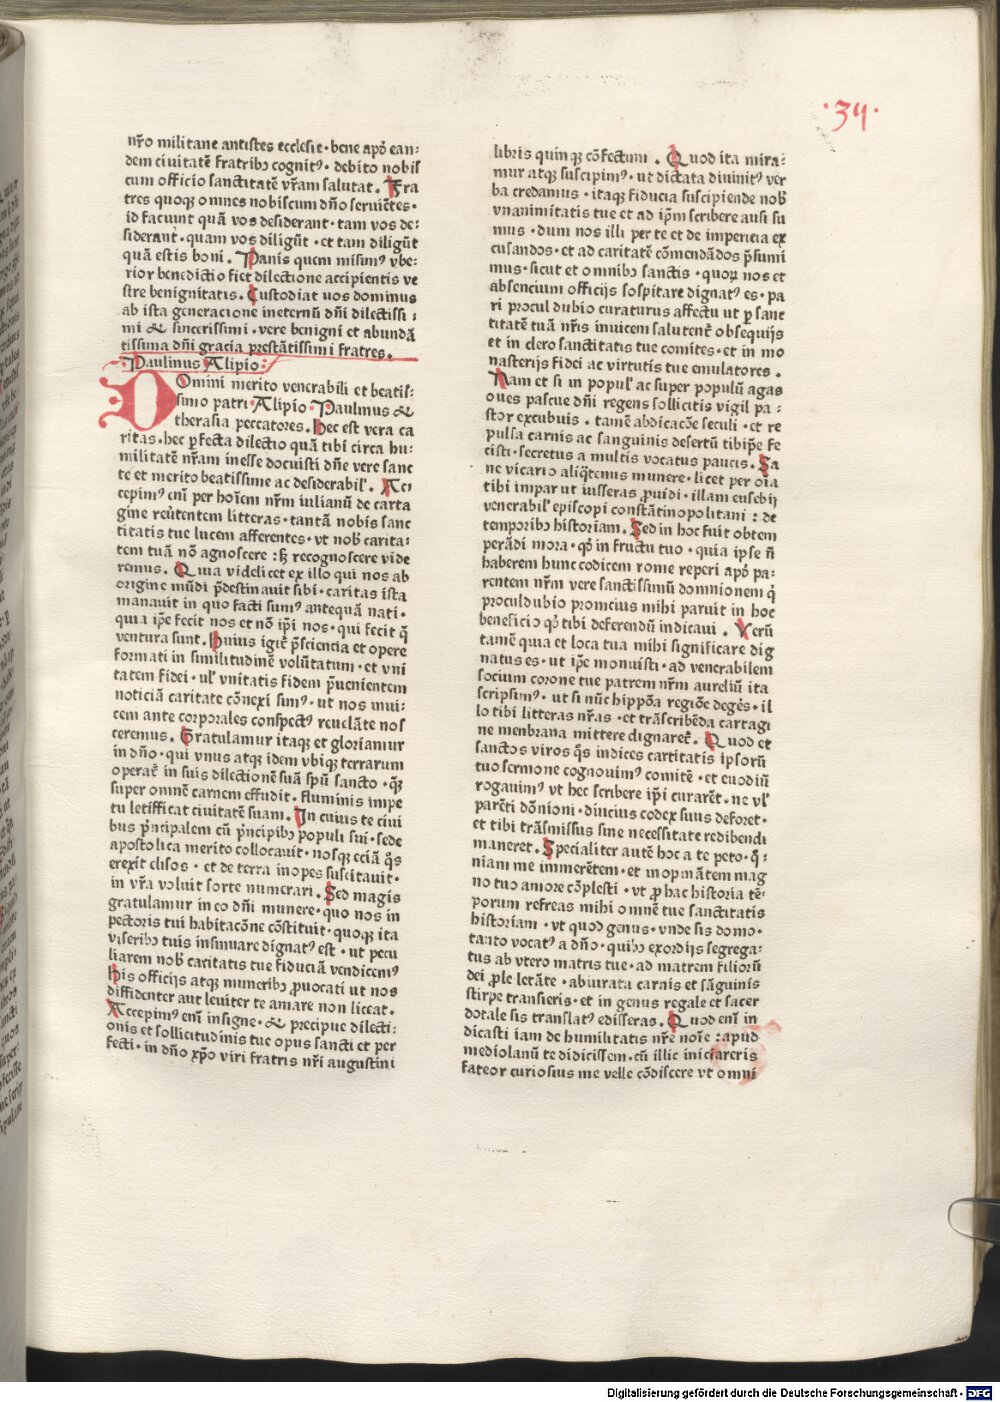 ·34·
nr̃o militane antistes ecclesie · bene apð ean⸗
dem ciuitatẽ fratribꝫ cognitꝰ · debito nobis
cum officio sanctitatẽ vr̃am salutat . Fra
tres quoqꝫ omnes nobiscum dño seruiẽtes ·
id faciunt quã vos desiderant · tam vos de⸗
siderant · quam vos diligũt · et tam diligũt
quã estis boni . Panis quem misimꝰ vbe⸗
rior benedictio fiet dilectione accipientis ve
stre benignitatis . Custodiat uos dominus
ab ista generacione ineternũ dñi dilectissi ⸗
mi & sincerissimi · vere benigni et abundã
tissima dñi gracia prestãtissimi fratres .
Paulinus Alipio ·
Domini merito venerabili et beatis⸗
simo patri · Alipio · Paulinus &
therasia peccatores . Hec est vera ca
ritas · hec ꝑfecta dilectio quã tibi circa hu⸗
militatẽ nr̃am inesse docuisti dñe vere sanc
te et merito beatissime ac desiderabil' . Acci
cepimꝰ eni᷉ per hoi᷉em nr̃m iulianũ de carta
gine reu᷉tentem litteras · tantã nobis sanc
titatis tue lucem afferentes · vt nob᷉ carita⸗
tem tuã nõ agnoscere : sꝫ recognoscere vide
remus . Quia videlicet ex illo qui nos ab
origine mũdi p᷉destinauit sibi · caritas ista
manauit in quo facti sumꝰ antequã nati ·
quia ip̃e fecit nos et nõ ip̃i nos · qui fecit q̃
ventura sunt . Huius igit᷉ p᷉sciencia et opere
formati in similitudinẽ volũtatum · et vni
tatem fidei · ul' vnitatis fidem p᷉uenientem
noticiã caritate cõnexi simꝰ · ut nos inui⸗
cem ante corporales conspectꝰ reuelãte nos
ceremus . Gratulamur itaqꝫ et gloriamur
in dño · qui vnus atqꝫ idem vbiqꝫ terrarum
operat᷉ in suis dilectionẽ suã spũ sancto · q᷉ꝫ
super omnẽ carnem effudit . fluminis impe
tu letificat ciuitatẽ suam . In cuius te ciui
bus p᷉ncipalem cũ p᷉ncipibꝫ populi sui · sede
apostolica merito collocauit · nosqꝫ eciã q᷉s
erexit elisos · et de terra inopes suscitauit ·
in vr̃a voluit sorte numerari . Sed magis
gratulamur in eo dñi munere · quo nos in
pectoris tui habitacõne cõstituit · quoqꝫ ita
visceribꝫ tuis insinuare dignatꝰ est · ut pecu
liarem nob᷉ caritatis tue fiduciã vendicemꝰ
His officijs atqꝫ muneribꝫ ꝓuocati ut nos
diffidenter aut leuiter te amare non liceat .
Accepimꝰ eni᷉ insigne · & precipue dilecti⸗
onis et sollicitudinis tue opus sancti et per
fecti · in dño xp̃o viri fratris nr̃i augustini
libris quinqꝫ cõfectum . Quod ita mira⸗
mur atqꝫ suscipimꝰ · ut dictata diuinitꝰ ver
ba credamus · itaqꝫ fiducia suscipiende nob᷉
vnanimitatis tue et ad ip̃m scribere ausi su
mus · dum nos illi per te et de impericia ex
cusandos · et ad caritatẽ cõmendãdos p᷉sumi
mus · sicut et omnibꝫ sanctis · quoꝝ nos et
absencium officijs sospitare dignatꝰ es · pa
ri procul dubio curaturus affectu ut ꝑ sanc
titatẽ tuã nr̃is inuicem salutent᷉ obsequijs
et in clero sanctitatis tue comites · et in mo
nasterijs fidei ac virtutis tue emulatores .
Nam et si in popul' ac super populũ agas
oues pascue dñi regens sollicitis vigil pa⸗
stor excubuis · tamẽ abdicacõe seculi · et re
pulsa carnis ac sanguinis desertũ tibip̃e fe
cisti · secretus a multis vocatus paucis . Sa
ne vicario aliq᷉tenus munere · licet per oi᷉a
tibi impar ut iusseras ꝓuidi · illam eusebij
venerabil' episcopi constãtinopolitani : de
temporibꝫ historiam . Sed in hoc fuit obtem
perãdi mora · qꝫ in fructu tuo · quia ipse ñ
haberem hunc codicem rome reperi apð pa⸗
rentem nr̃m vere sanctissimũ domnionem q᷉
proculdubio promcius mihi paruit in hoc
beneficio qꝫ tibi deferendũ indicaui . Verũ
tamẽ quia et loca tua mihi significare dig
natus es · ut ip̃e monuisti · ad venerabilem
socium corone tue patrem nr̃m aureliũ ita
scripsimꝰ · ut si nũc hippõa regiõe degẽs · il
lo tibi litteras nr̃as · et trãscribẽda cartagi
ne menbrana mittere dignaret᷉ . Quod et
sanctos viros q᷉s indices cartitatis ipsorũ
tuo sermone cognouimꝰ comitẽ · et euodiũ
rogauimꝰ vt hec scribere ip̃i curarẽt · ne vl'
parẽti dõnioni · diucius codex suus deforet ·
et tibi trãsmissus sine necessitate redibendi
maneret . Specialiter autẽ hoc a te peto · q᷉⸗
niam me immerẽtem · et inopinãtem mag
no tuo amore cõplesti · vt ꝓ hac historia tẽ⸗
porum referas mihi omnẽ tue sanctitatis
historiam · vt quod genus · vnde sis domo ·
tanto vocatꝰ a dño · quibꝫ exordijs segrega⸗
tus ab vtero matris tue · ad matrem filiorũ
dei ꝓle letãte · abiurata carnis et sãguinis
stirpe transieris · et in genus regale et sacer
dotale sis translatꝰ edisseras . Quod eni᷉ in
dicasti iam de humilitatis nr̃e noi᷉e : apud
mediolanũ te didicissem · cũ illic iniciareris
fateor curiosius me velle cõdiscere vt omni
Digitalisierung gefördert durch die Deutsche Forschungsgemeinschaft - DFG